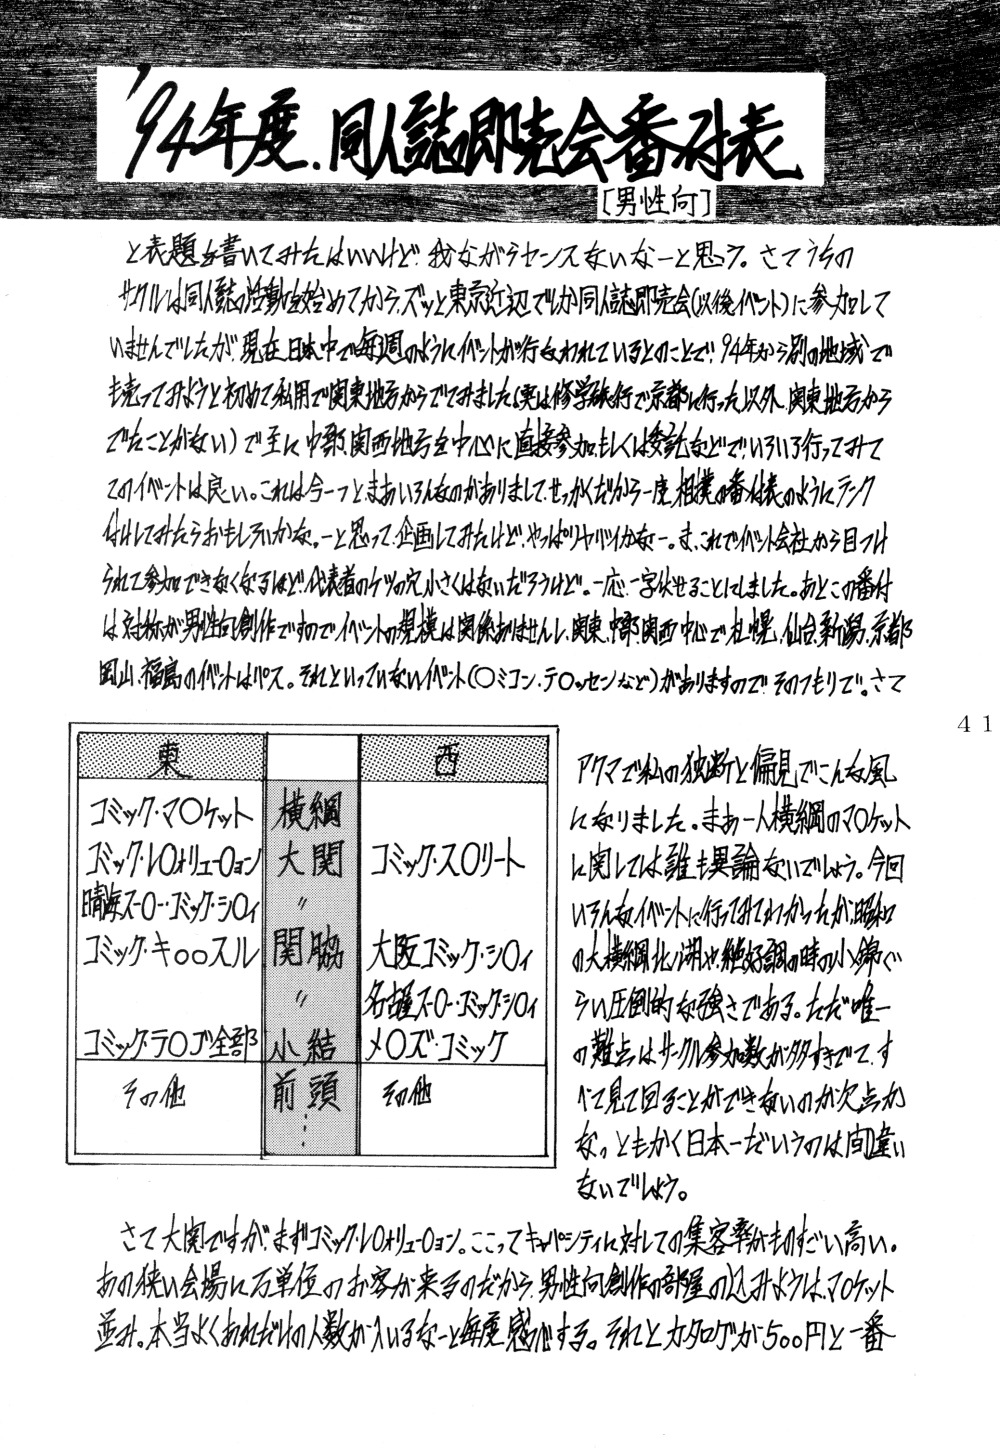 '94年度.同人誌即売会番付表
[男性向]
と表題を書いてみたはいいけど我ながらセンスないなーと思う。さてうちの
サークルは同人誌の活動を始めてから、ズッと東京近辺でしか同人誌即売会(以後イベント)に参加して
いませんでしたが、現在、日本中で毎週のようにイベントが行なわれているとのことで、94年から別の地域で
も売ってみようと初めて私用で関東地方からでてみました(実は修学旅行で京都に行った以外、関東地方から
でたことがない)で主に中部、関西地方を中心に直接参加、もしくは委託などで、いろいろ行ってみて
このイベントは良い。これは今一つと、まあいろんなのがありまして、せっかくだから一度、相撲の番付表のようにランク
付けしてみたらおもしろいかな。ーと思って、企画してみたけど、やっぱりヤバイかなー。ま、これでイベント会社から目つけ
られて参加できなくなるほど、代表者のケツの穴、小さくはないだろうけど。一応、一字伏せることにしました。あとこの番付
は対称が男性向創作ですのでイベントの規模は関係ありませんし、関東、中部、関西中心で札幌、仙台、新潟、京都
岡山、福島のイベントはパス。それといっていないイベント(○ミコン、テ○ッセンなど)がありますので、そのつもりで。さて
41
東 西
コミック・マ○ケット 横綱
コミック・レ○ォリュー○ョン 大関 コミック・ス○リート
晴海スー○ー・コミック・シ○ィ 〃
コミック・キ○○スル 関脇 大阪コミック・シ○ィ
〃 名古屋スー○ー・コミック・シ○ィ
コミック・テ○ゴ全部 小結 メ○ズ・コミック
その他 前頭 その他
アクマで私の独断と偏見でこんな風
になりました。まあ一人横綱のマ○ケット
に関しては誰も異論ないでしょう。今回
いろんなイベントに行ってみてわかったが、昭和
の大横綱、北ノ湖や、絶好調の時の小錦ぐ
らい圧倒的な強さである。ただ唯一
の難点はサークル参加数が多すぎてで、す
べて見て回ることができないのが欠点か
な。ともかく日本一だいうのは間違い
ないでしょう。
さて大関ですが、まずコミック・レ○ォリュー○ョン。ここってキャパシティに対しての集客率がものすごい高い。
あの狭い会場に万単位のお客が来るのだから、男性向創作の部屋の込みようは、マ○ケット
並み。本当よくあれだけの人数が入いるなーと毎度感心する。それとカタログが500円と一番